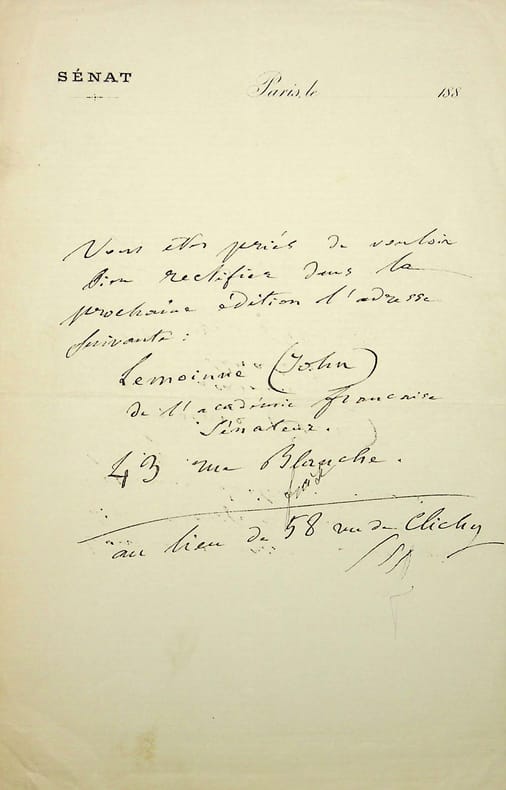 SÉNAT
Paris, le 188
Vous êtes priés de vouloir
bien rectifier dans la
prochaine édition l'adresse
suivante :
Lemoinne (John)
de l'académie française
Sénateur.
43 rue Blanche.
au lieu de 58 rue de Clichy